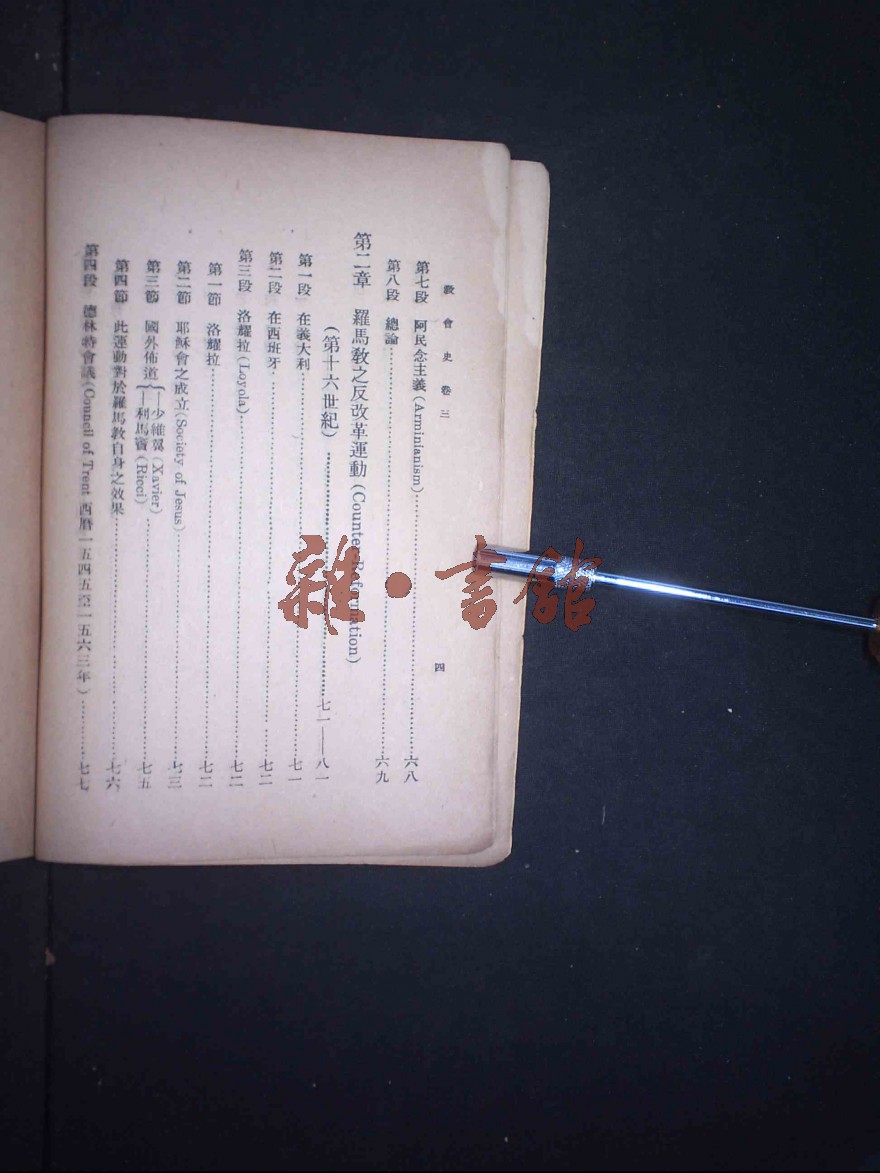 教會史 卷三
四
第七段 阿民念主義(Arminianism)……六八
第八段 總論……六九
第二章 羅馬教之反改革運動(Counter Reformation)
(第十六世紀)……七一——八一
第一段 在義大利……七一
第二段 在西班牙……七二
第三段 洛耀拉(Loyola)……七二
第一節 洛耀拉……七二
第二節 耶穌會之成立(Society of Jesus)……七三
第三節 國外佈道{—少維翼(Xavier) —利馬竇(Ricci)……七五
第四節 此運動對於羅馬教自身之效果……七六
第四段 德林特會議(Council of Trent 西曆一五四五至一五六三年)……七七
雜·書館